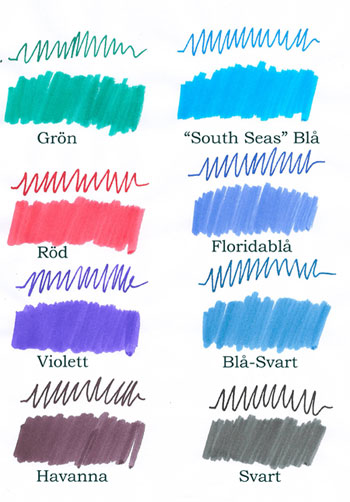 Grön
"South Seas" Blå
Röd
Floridablå
Violett
Blå-Svart
Havanna
Svart